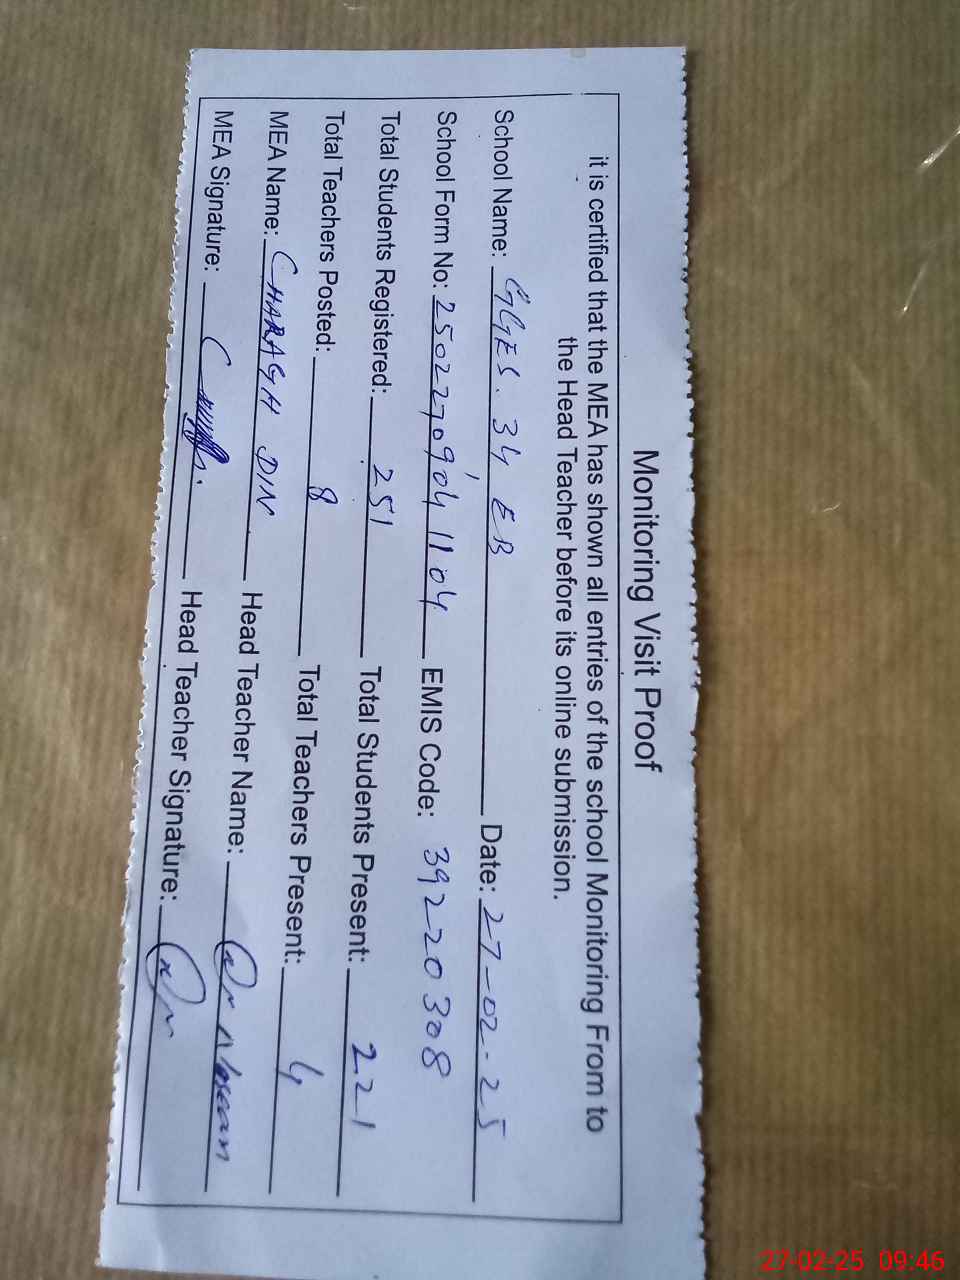 Monitoring Visit Proof
it is certified that the MEA has shown all entries of the school Monitoring From to
the Head Teacher before its online submission.
School Name: GGES. 34 EB Date: 27-02-25
School Form No: 2502270904 1104 EMIS Code: 39220308
Total Students Registered: 251 Total Students Present: 221
Total Teachers Posted: 8 Total Teachers Present: 4
MEA Name: CHARAGH DIN Head Teacher Name:
MEA Signature: Head Teacher Signature:
27-02-25 09:46